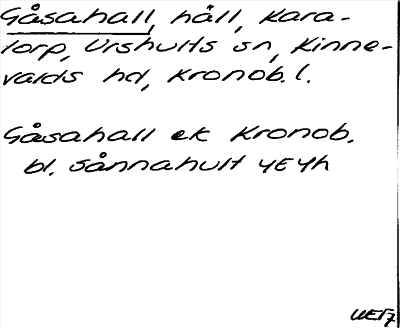 Gåsahall, häll, Kara-
torp, Urshults sn, Kinne-
valds hd, Kronob. l.
Gåsahall ek Kronob.
bl. Sånnahult 4E4h